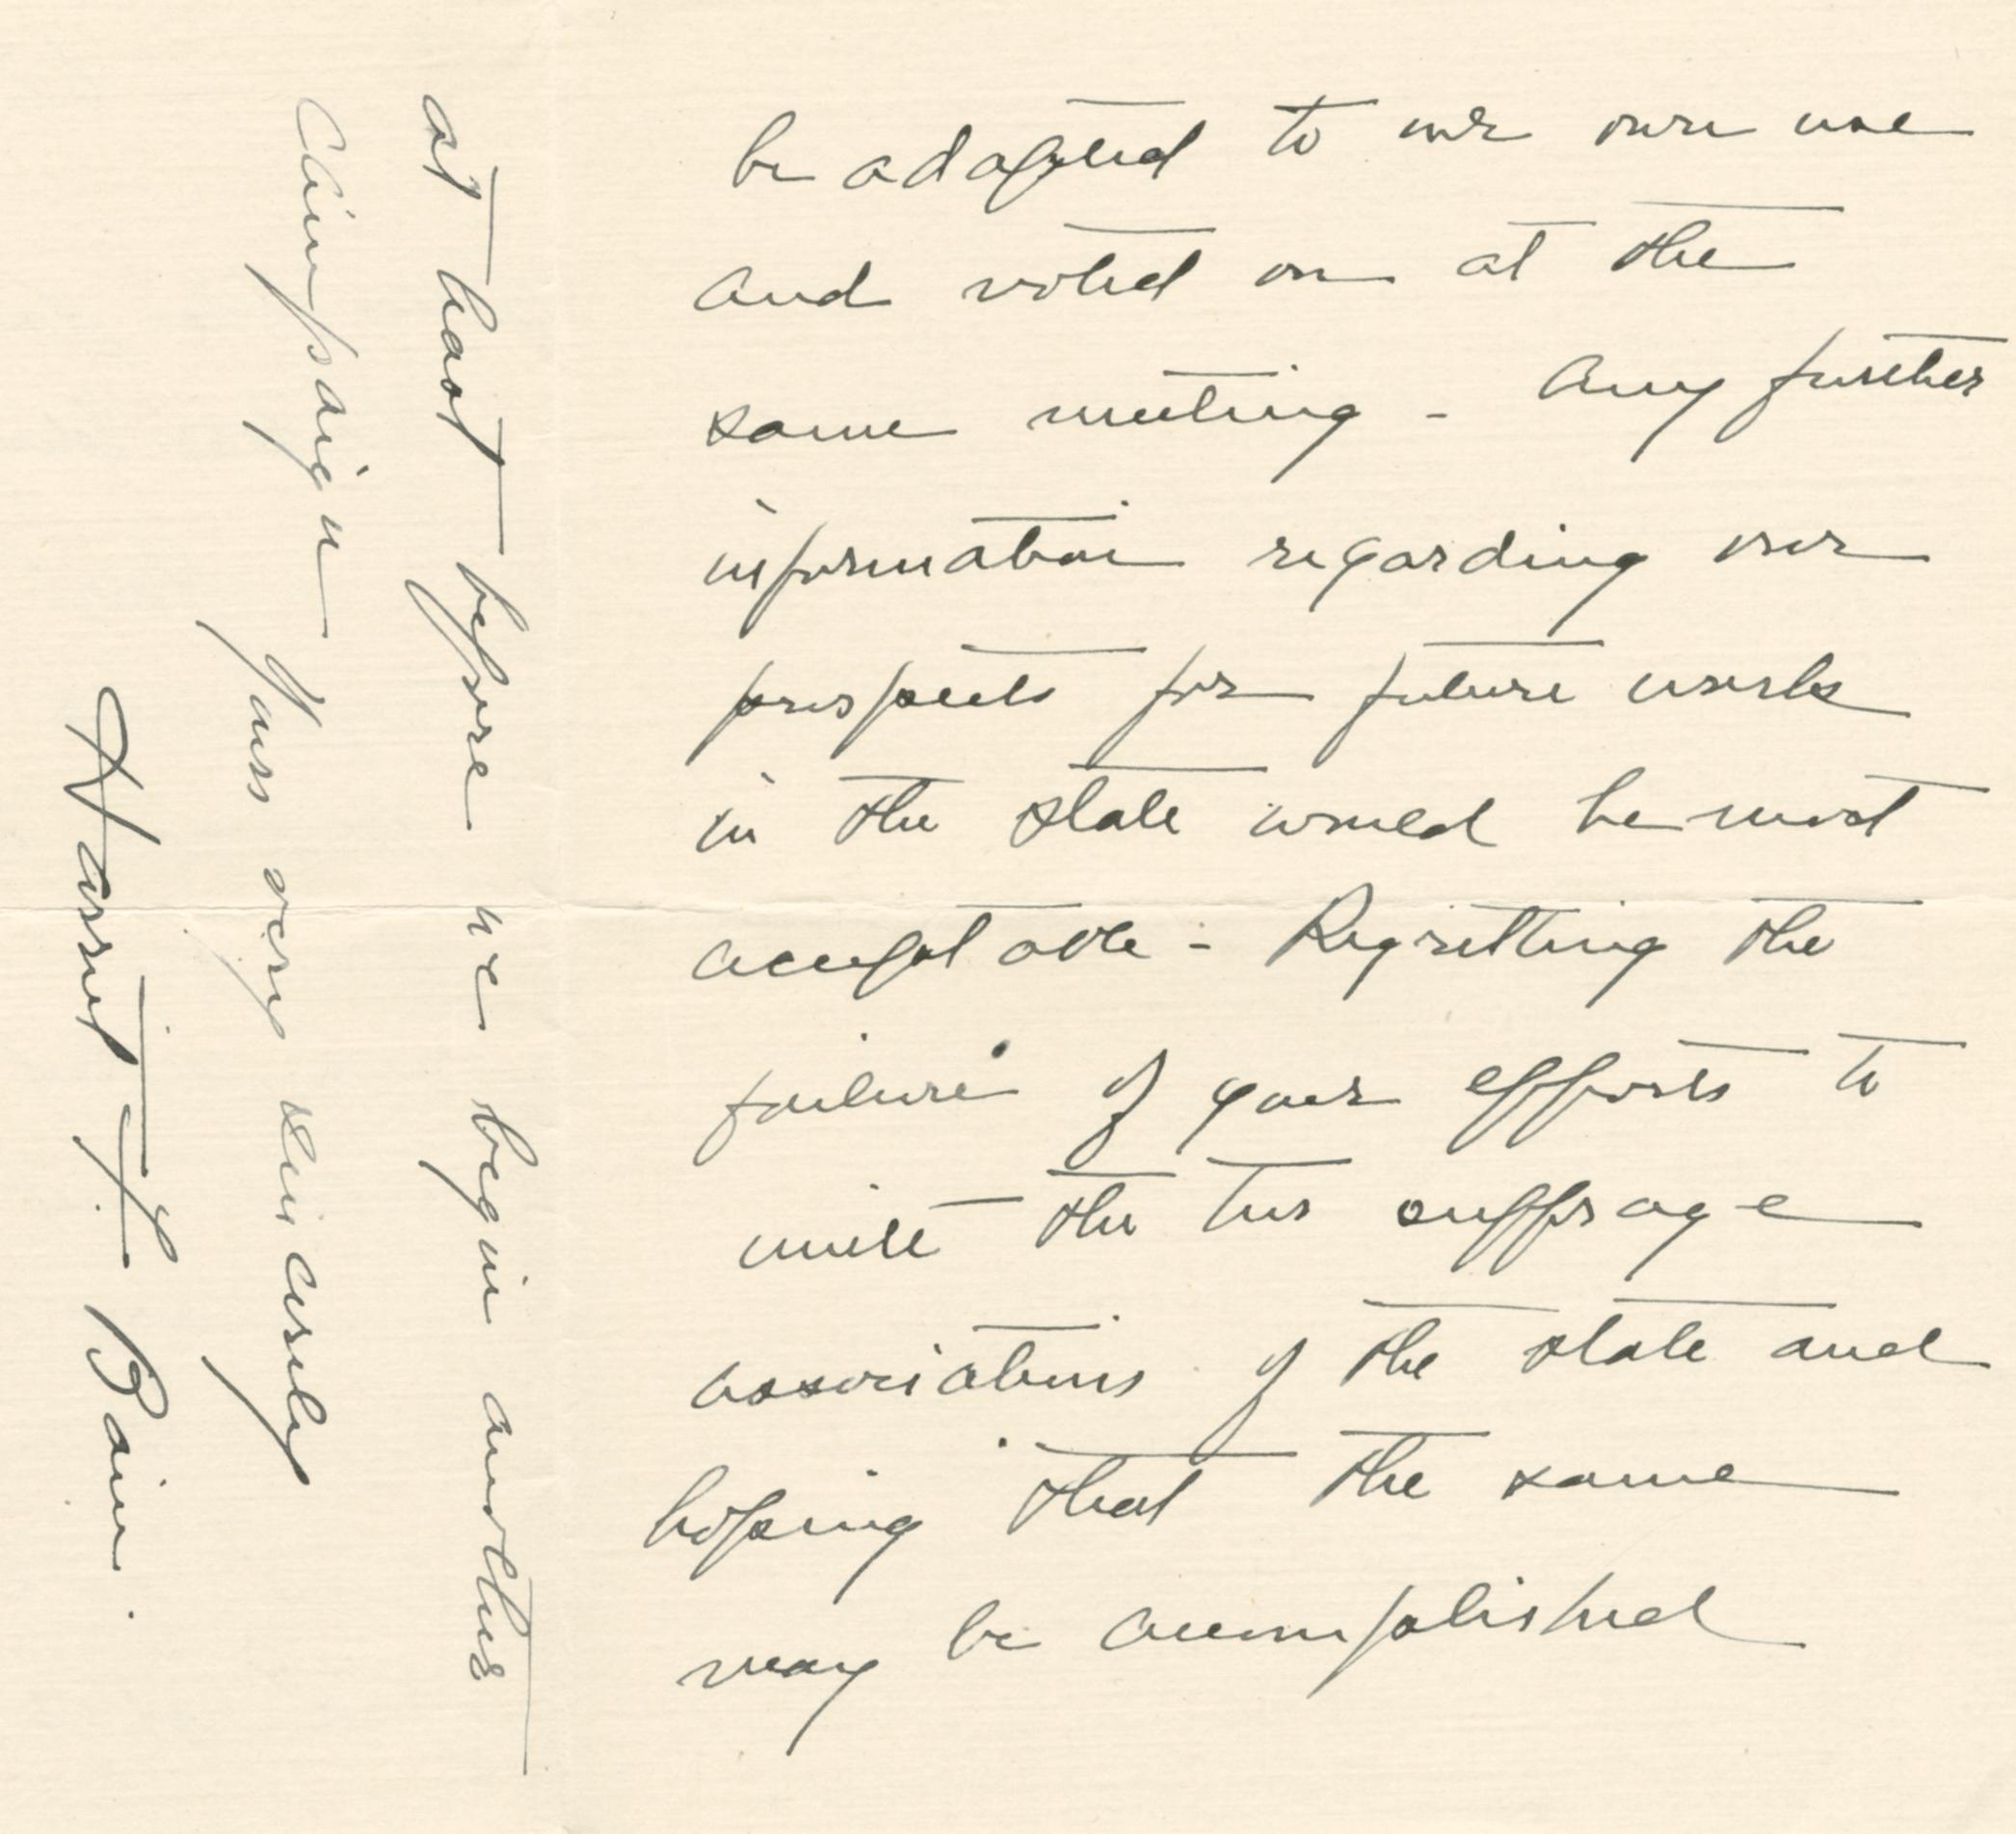 be adapted to our own use
and voted on at the
same meeting - Any further
information regarding our
prospects for future work
in the state would be most
acceptable - Regretting the
failure of your efforts to
unite the two suffrage
associations of the state and
hoping that the same
may be accomplished
at least before we begin another
campaign Yours very sincerely
Harriet F. Bain.